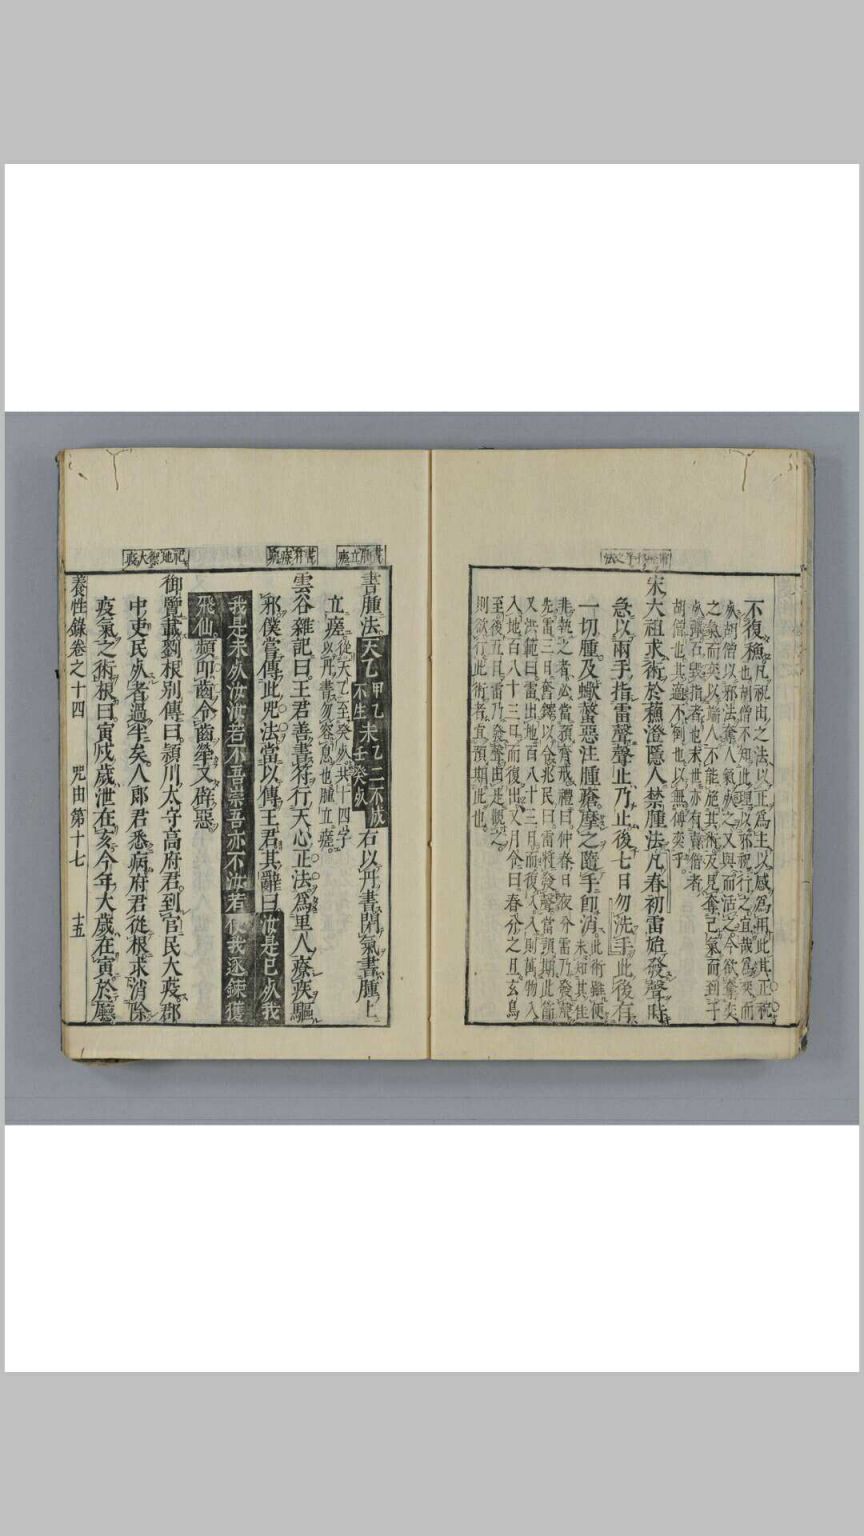 不復穐
凡祝由之法以正爲主以感爲用此其正祝
也胡僧不知此理以邪祝行之宜哉
胡僧以邪法奪人氣
之又與而活之今欲奪奕
之氣而奕以端人不能施其術反見奪己氣而到
指者也末世亦有
胡僧也其適不倒也以無傳奕乎
宋大祖求術於蘓澄隱人禁腫法凡春初雷始發聲時
急以兩手指雷聲聲止乃止後七日勿洗手此後有
一切腫及蠍螫惡注腫瘡摩之隨手卽消
此術雖便
未知其佳
非執之者必當預齊戒禮曰仲春日夜分雷乃發聲
先雷三日奮鐸以令兆民曰雷將發聲當預期此節
又洪範曰雷出地百八十三日而復入入則萬物入
入地百八十三日而復出又月令曰春分之日玄鳥
至後五日雷乃發聲由是觀之
則欲行此術者宜預期此也
書腫立瘥
書腫法天乙
甲乙未乙二不成
不生壬癸
右以丹書閉氣書腫上
立瘥
從天乙至癸
共十四字
以丹書勿容息也腫立瘥
書符療
雲谷雜記曰王君善書符行天心正法爲里人療疾驅
邪僕嘗傳此咒法當以傳王君其辭曰汝是已
我
我是未
汝汝若不吾祟吾亦不汝若使我逐錬獲
飛仙頻叩齒令齒
又辟惡
祀地禦大疫
御覽載劉根别傳曰頴川太守高府君到官民大疫郡
中吏民
者過半矣人郎君悉病府君從根求消除
疫氣之術根曰寅戌歲泄在亥今年大歲在寅於廳
養性錄卷之十四 咒由第十七 十五